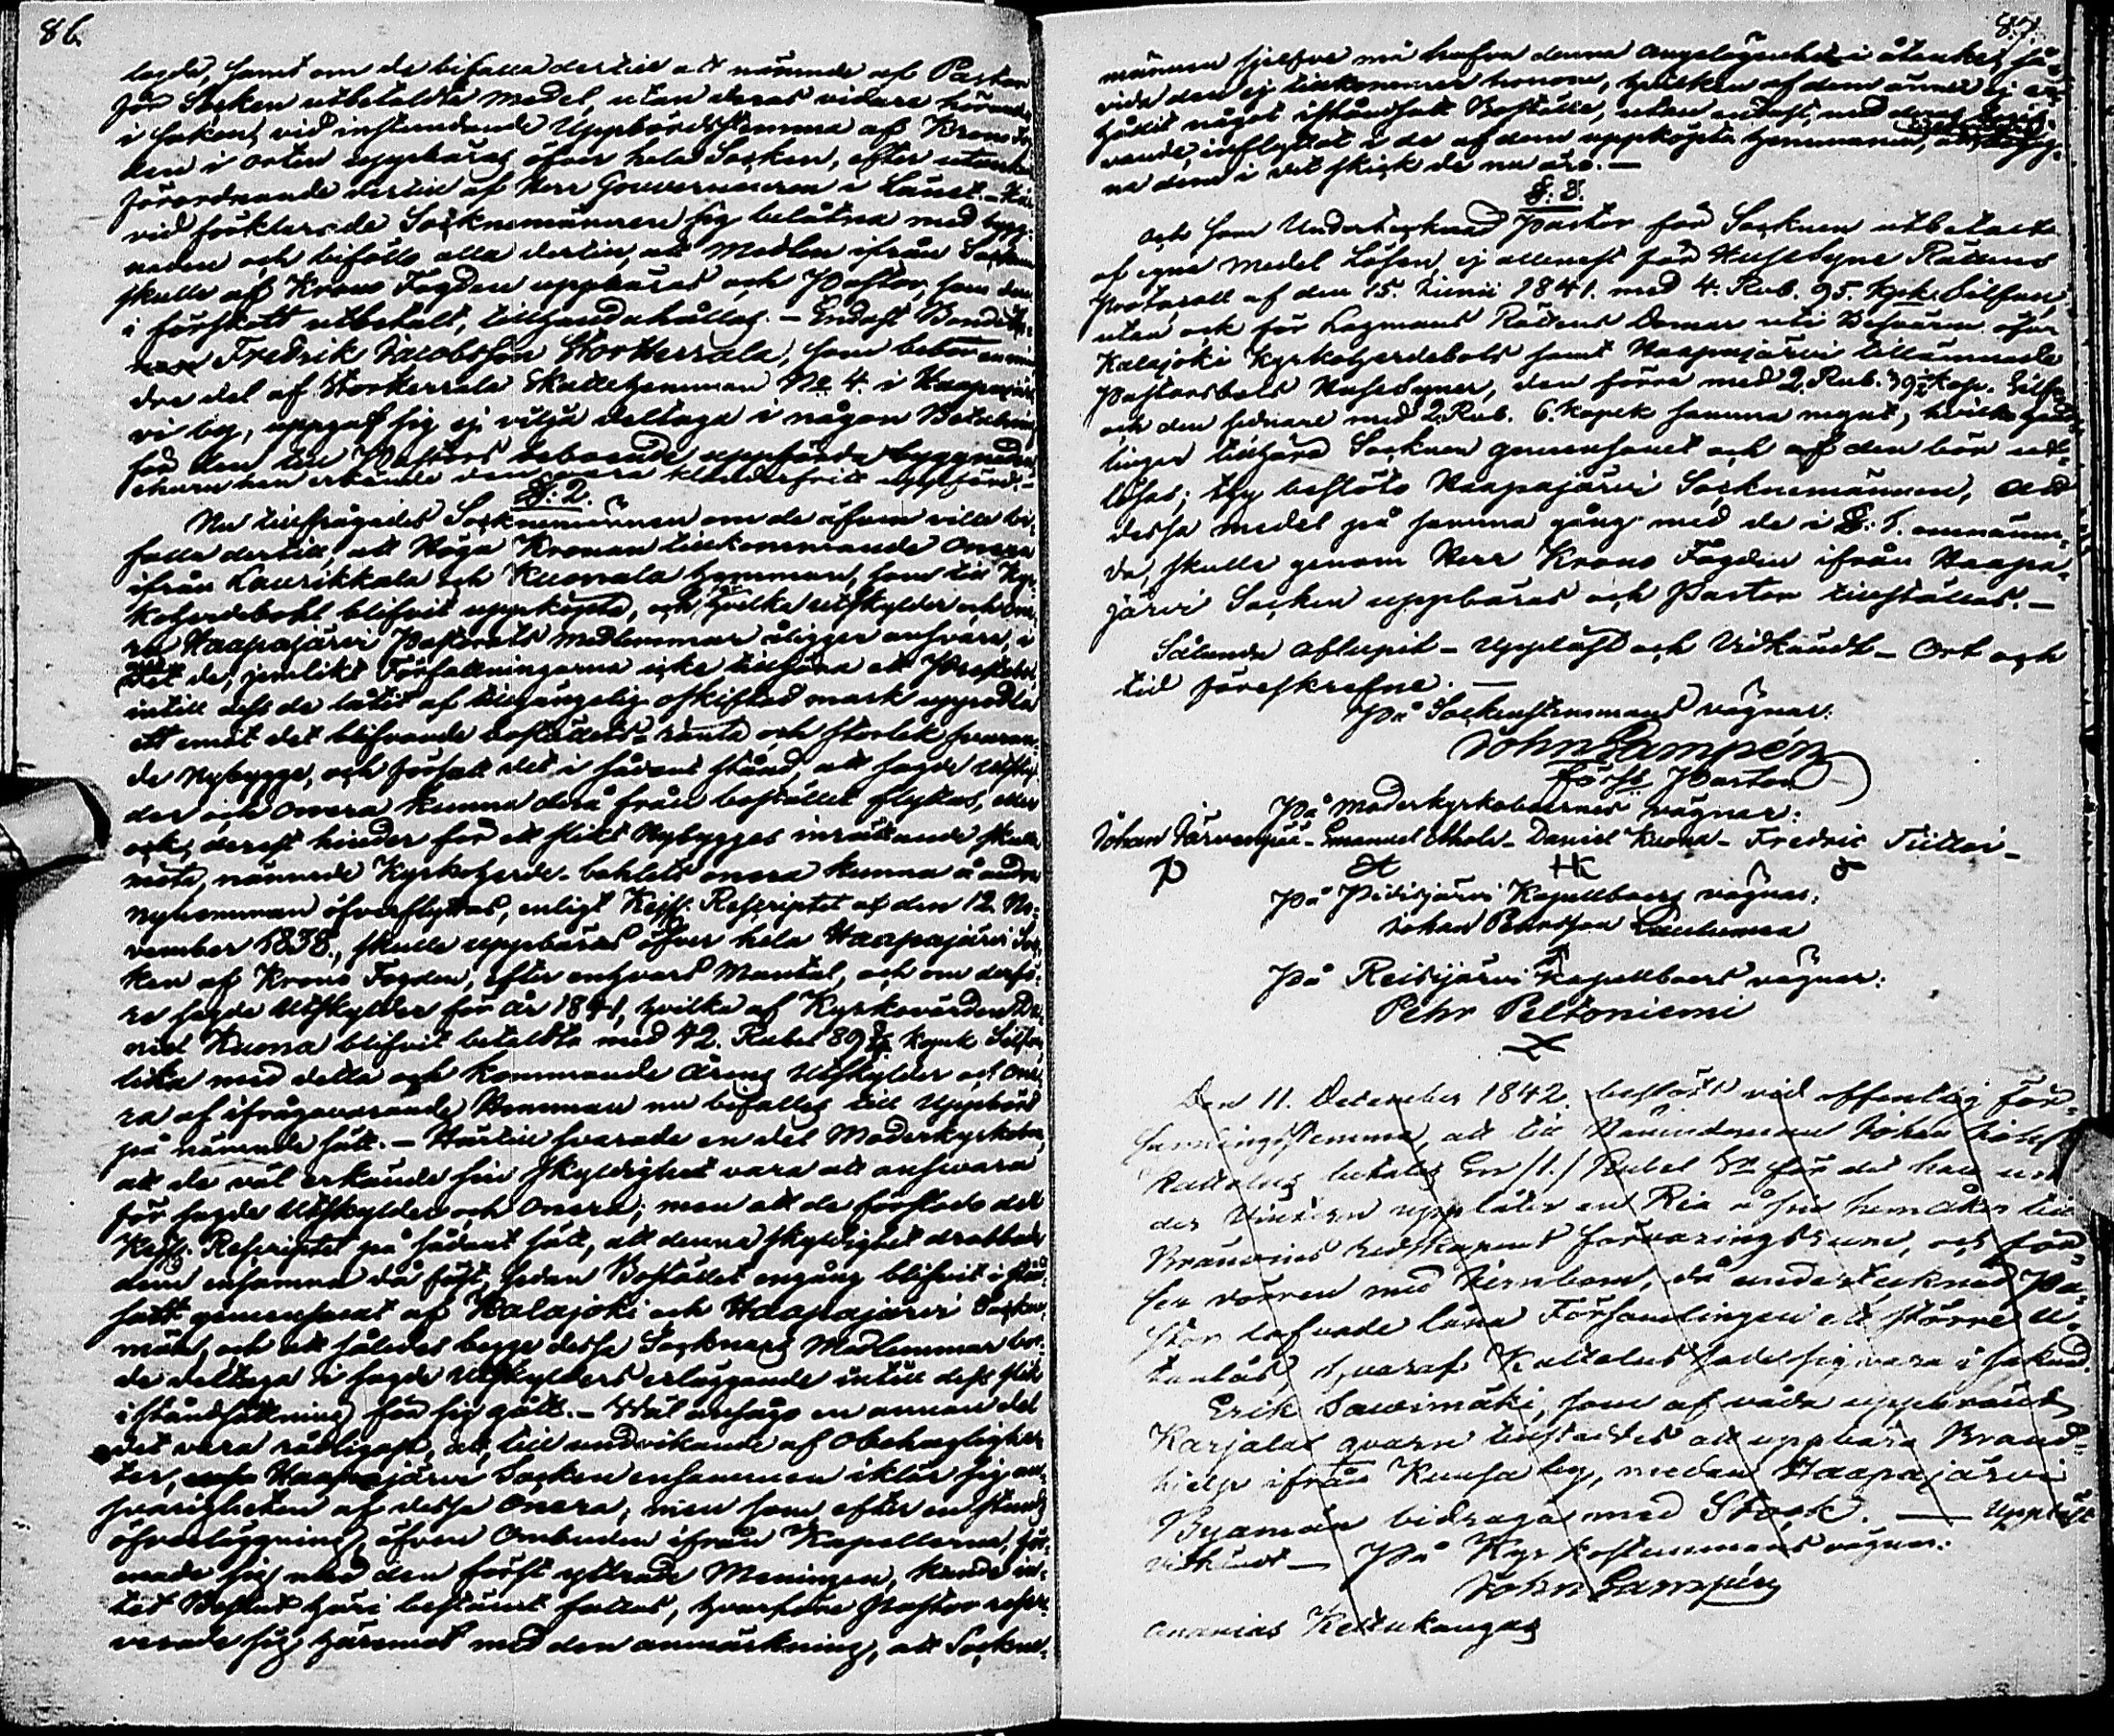 86.
lagde, samt om de bifalla dertill att nämnde af Pastor
för Socken utbetalda medel, utan deras vidare hörande
i saken, vid instundande Uppbördsstemma af Krono Fog
den i orten uppbäras öfver hela Socken, efter
förordnande dertill af Herr Gouverneuren i Länet. - Här
vid förklarade Socknemännen sig belåtna med bygg
naden och biföllo alla dertill, att Medlen ifrån Socknen
skulle af Krono Fogden uppbäras och Pastor, som dem
i förskott utbetalt, tillhandahållas. - Endast Bonde
Fredrik Jacobsson Storkerrala, som bebor en min
dre del af Storkerrala Skattehemman No 4 i Haapajär
vi by, uppgaf sig ej vilja deltaga i någon Betalning
för den till Pastors uppförda byggnaden,
ehuru han erkände den vara klanderfritt uppförd. -
§: 2.
Nu tillfrågades Socknemännen om de äfven ville bi
falla dertill, att Höga Kronan tillkommande Onera
ifrån Laurikkala och Kuonala hemman, som till Kyr
koherdebohl blifvit uppköpta, och hvilka utskylder och One
ra Haapajärvi Pastorats medlemmar åligger ansvara, i
det de, jemlikt Författningarna icke tillhöra ett
intill dess de låtit af tillgängelig oskiftad mark uppodla
ett emot det blifvande boställets ränta och storlek svaran
de Nybygge, och försatt det i sådant stånd, att sagde Utskyl
der och Onera kunna derå från bostället flyttas, eller
och, derest hinder för ett slikt Nybygges inrättande skulle
möta, nämnde Kyrkoherde-bohlets onera kunna å andra
nyhemman öfverflyttas, enligt Kejs. Rescriptet af den 12. No
vember 1838., skulle uppbäras öfver hela Haapajärvi Soc
ken af Krono Fogden, efter enhvars Mantal, och om derfö
re sagde Utskylder för år 1841, hvilka af Kyrkovärden Da
niel Kuona blifvit betaldte med 42. Rubel 89 Kopek Silfver,
lika med detta och kommande årens Utskylder och One
ra af ifrågavarande Hemman nu bifalles till Uppbörd
på nämnde sätt. - Härtill svarade en del Moderkyrkobor,
att de väl erkände sin skyldighet vara att ansvara
för sagde Utskylder och Onera; men att de förstodo det
Kejs. Rescriptet på sådant sätt, att denna skyldighet drabbade
dem ensamna då först, sedan Bostället engång blifvit i stånd
satt gemensamt af Kalajoki och Haapajärvi Sockne
män, och att således begge dessa Socknars Medlemmar bor
de deltaga i sagde Utskylders erläggande intill dess slik
iståndsättning för sig gått. - Väl ansågo en annan del
det vara rådligast, att till undvikande af obehaglighe
ter, Haapajärvi Socken ensammen iklär sig an
svarigheten af dessa Onera; men som efter en stunds
öfverläggning, äfven Ombuden ifrån Kapellerna, för
enade sig med den först yttrade Meningen, kunde in
tet Beslut häri bestämdt fattas, hvarföre Pastor reser
verade sig häremot med den anmärkning, att Sockne
87.
männen sjelfve må hafva denna angelägenhet i åtanke, så
vida den ej tillkommer honom, hvilken af dem ännu ej er
hållit något iståndsatt Boställe, utan endast, med deras begif
vande, inflyttat i de af dem uppköpta hemmanen,
na dem i det skick de nu äro. -
§: 3.
Och som Undertecknad Pastor för Socknen utbetalte
af egna medel Lösen, ej allenast för HuseSyne Rättens
Protocoll af den 15. Junii 1841. med 4. Rub. 95. Kpk. Silfver,
utan ock för Lagmans Rättens Domar uti Besvären öfver
Kalajoki Kyrkoherdebols samt Haapajärvi tillämnade
Pastorsbols HuseSyner, den förra med 2. Rub. 39½ Kop. Silfver
och den sednare med 2. Rub. 6. Kopek samma mynt, hvilka hand
lingar tillhöra Socknen gemensamt och af den bör ut
lösas; Ty beslöto Haapajärvi Socknemännen, att
dessa medel på samma gång med de i §: 1. omnämn
da, skulle genom Herr Krono Fogden ifrån Haapa
järvi Socken uppbäras och Pastor tillställas. -
Sålunda Aflupit - Uppläst och Vidkändt - Ort och
tid föreskrefne. -
På Sockenstemmans vägnar:
John Lampén
förste Pastor
På Moderkyrkoboernes vägnar:
Johan Järvenpää - Emanuel Ahola - Daniel Kuona - Fredric Tiitto -
På Pidisjärvi Kapellboers vägnar:
Johan Pehrsson
På Reisjärvi Kapellboers vägnar:
Pehr Peltoniemi
Den 11. December 1842. beslöts vid offentlig För
samlingsstemma, att till Nämndeman Johan
Kattelus betalas En /1./ Rubel Sr för det han un
der Vintern upplåter en Ria å sin hemåker till
Brännvins redskapens förvaringsrum, och förs
ser dörren med Jernbom, då undertecknad Pa
stor lofvade låna Församlingen ett större
hvaraf Kattelus sade sig vara i saknad.
Erik Savimäki, som af våda uppbränt
Karjalas qvarn tillstaddes att uppbära Brand
hjelp ifrån Kuusa by, medan Haapajärvi
Byamän bidraga med Stock. - Uppläst
vidkändt - På Kyrkostemmans vägnar:
John Lampén
Ananias Kettukangas